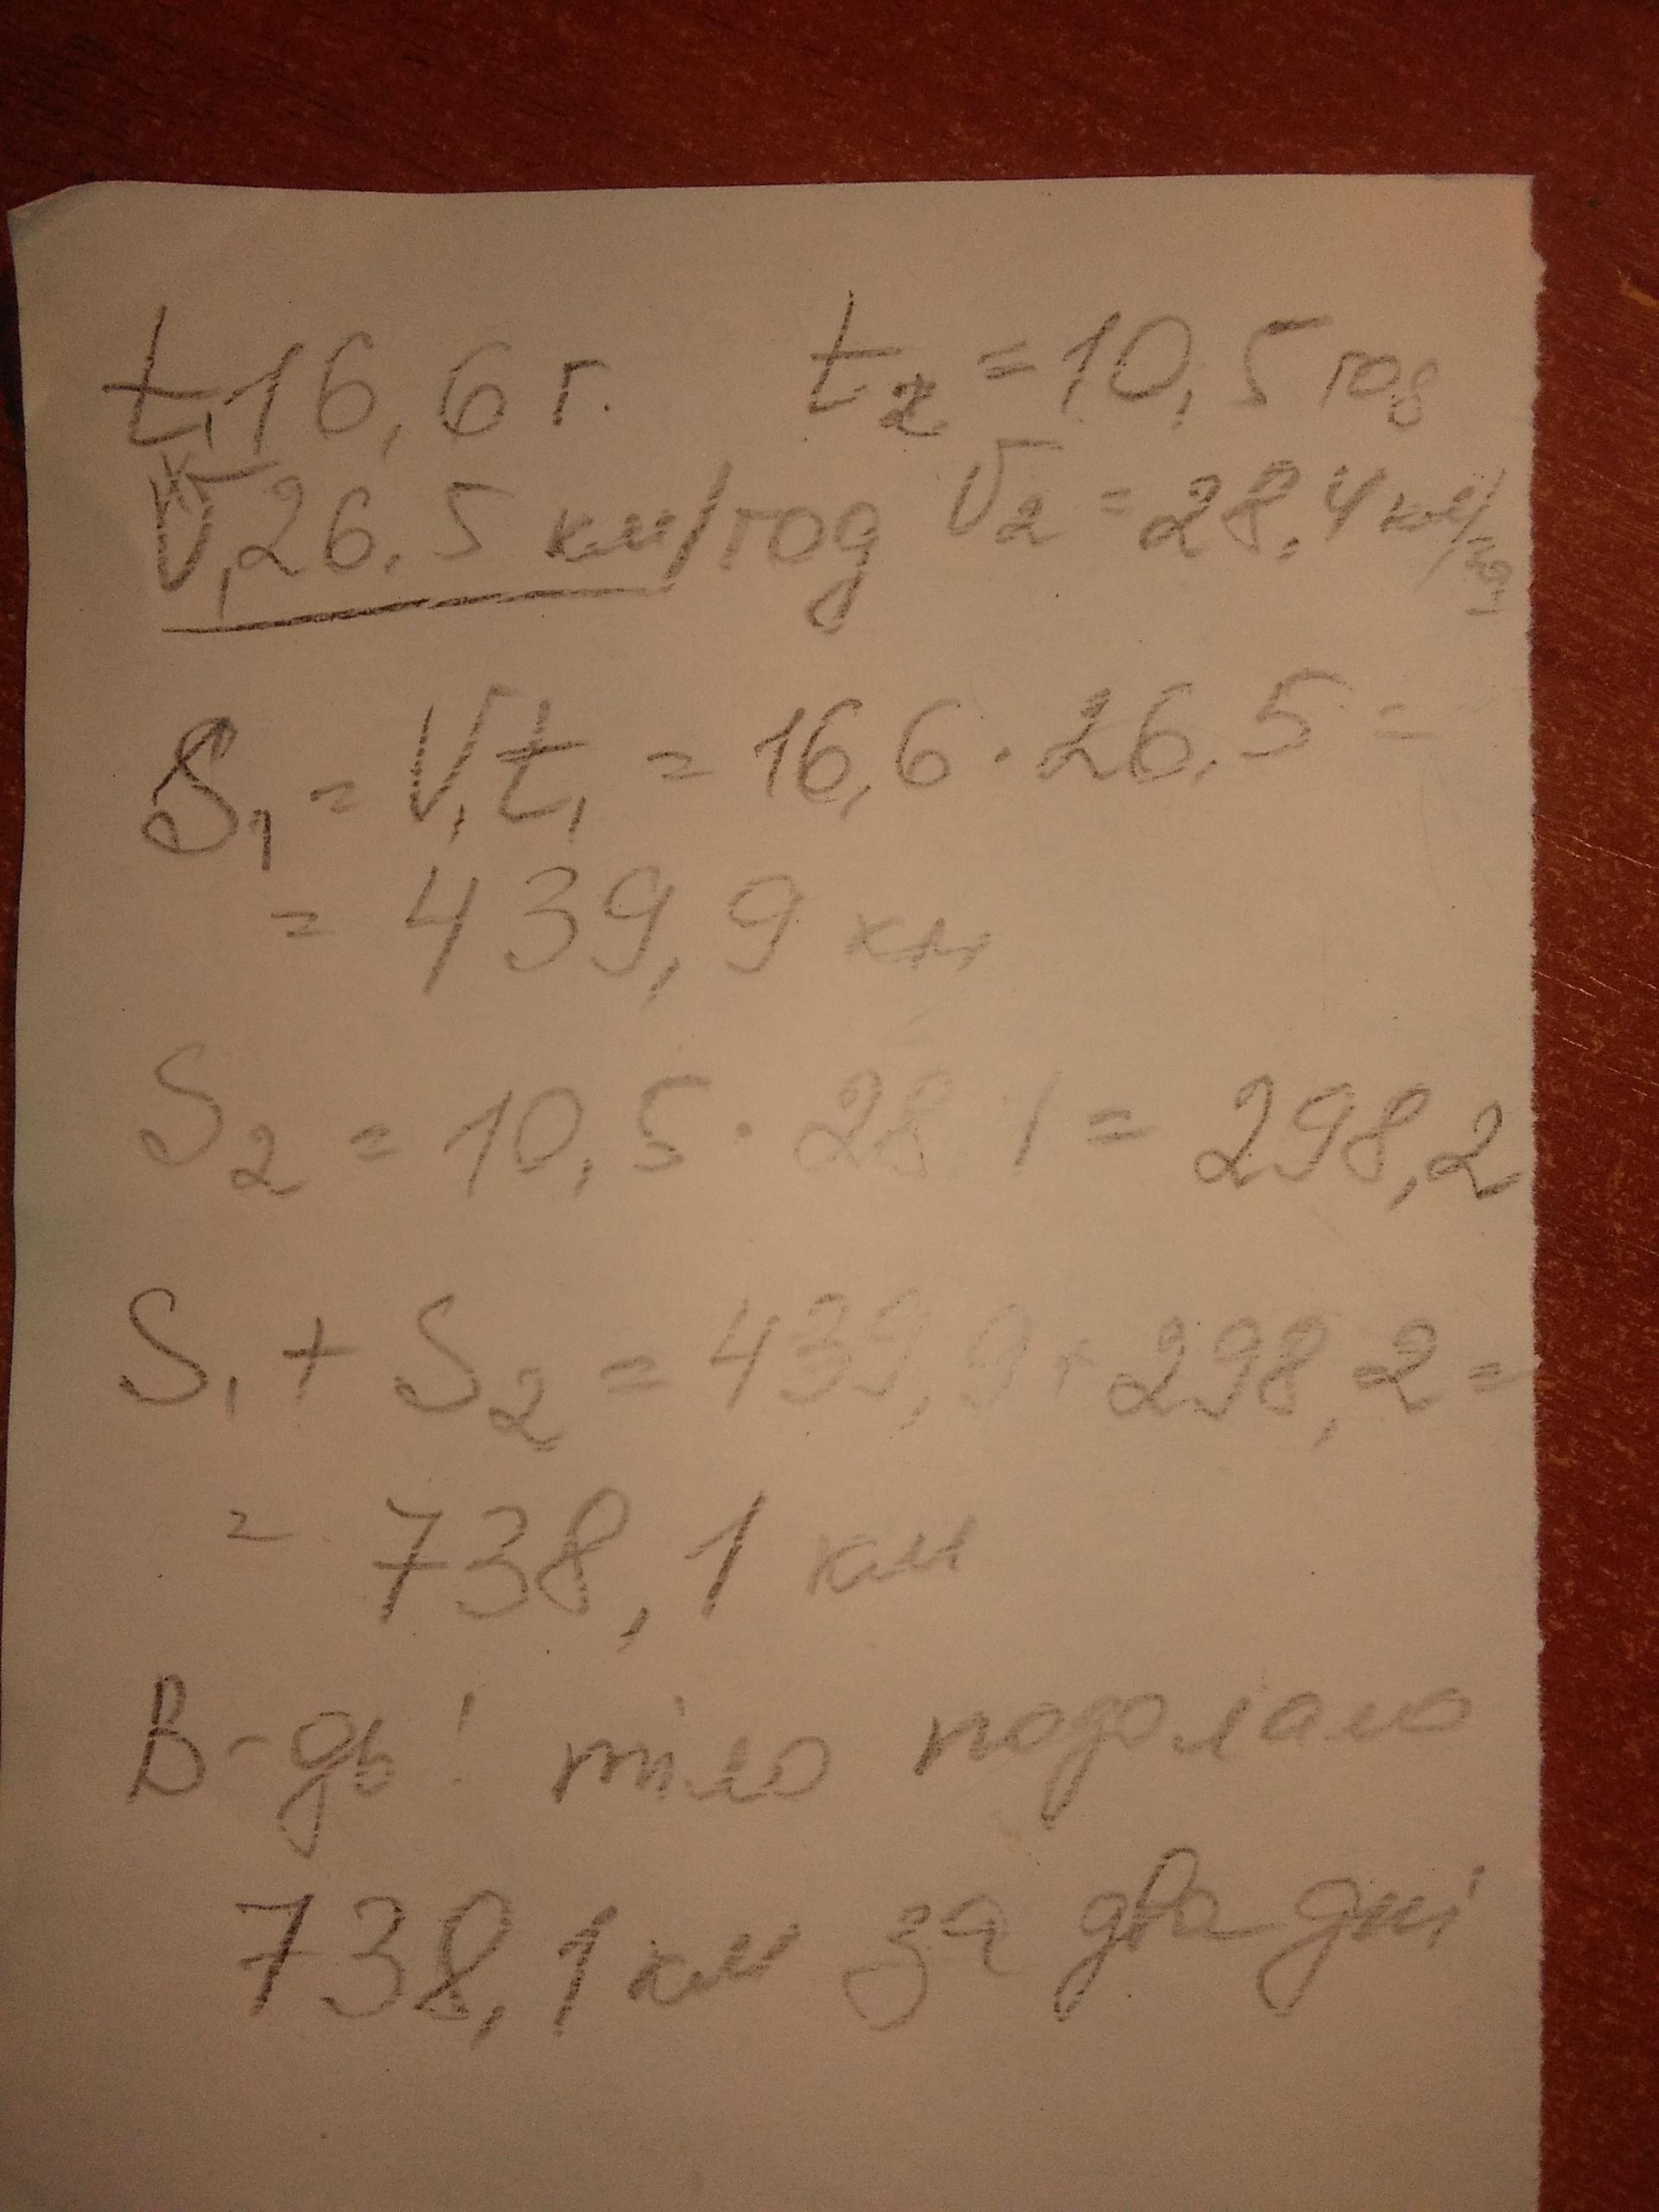 t₁ 16,6 г. t₂ = 10,5 год
V₁ 26,5 км/год V₂ = 28,4 км/год
S₁ = V₁t₁ = 16,6 · 26,5 =
= 439,9 км
S₂ = 10,5 · 28 = 298,2
S₁ + S₂ = 439,9 + 298,2 =
= 738,1 км
В-дь! тіло подолало
738,1 км за два дні